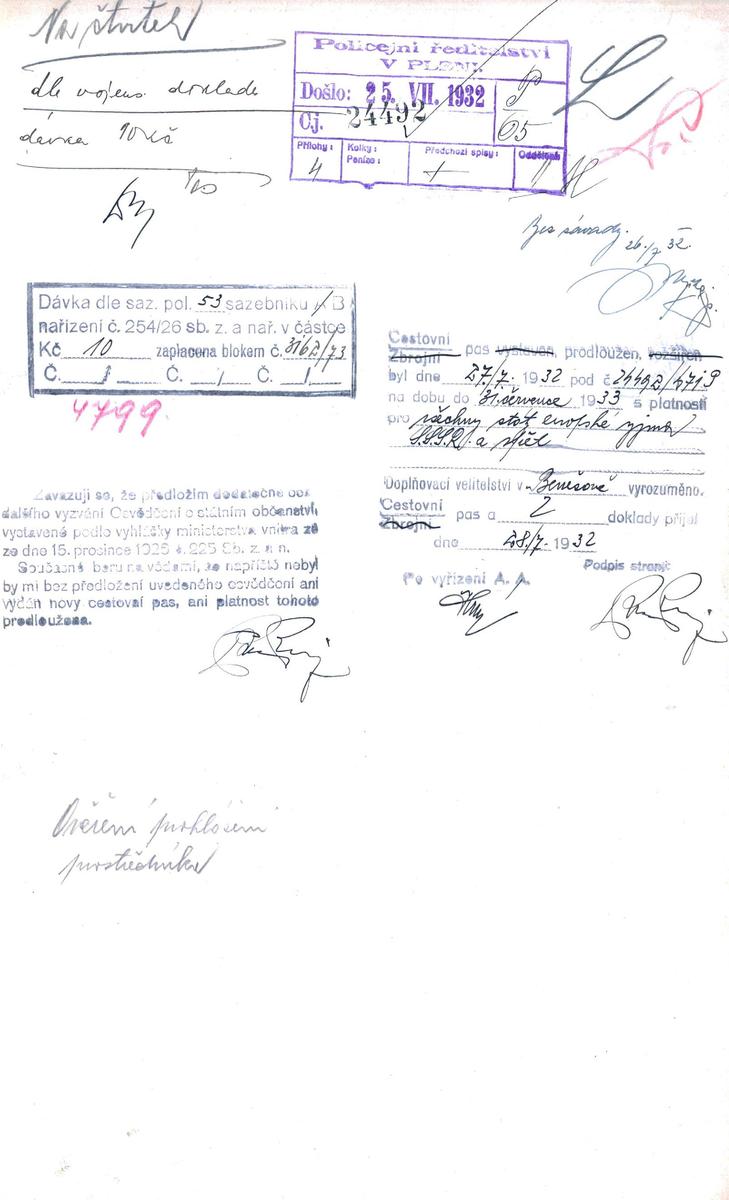 Na čtvrtek
dle vojens. dokladu
dávka 10 Kč
Policejní ředitelství
V PLZNI.
Došlo: 25. VII. 1932
Čj. 24492
P
65
Přílohy: 4
Kolky:
Peníze:
Předchozí spisy:
Oddělení:
Bez závady.
26./7. 32.
Dávka dle saz. pol. 53 sazebníku B
nařízení č. 254/26 sb. z. a nař. v částce
Kč 10 zaplacena blokem č. 3162/73
Č. / Č. / Č. /
4799.
Cestovní
Zbrojní pas vystaven, prodloužen, rozšířen
byl dne 27/7. 1932 pod č 24492/4719
na dobu do 31. července 1933 s platností
pro všechny stát. evropské vyjma
S.S.S.R. a zpět
Doplňovací velitelství v Benešově vyrozuměno.
Cestovní
Zbrojní pas a 2 doklady přijal
dne 28/7. 1932
Podpis strany:
Po vyřízení A. A.
Zavazuji se, že předložím dodatečně bez
dalšího vyzvání Osvědčení o státním občanství,
vystavené podle vyhlášky ministerstva vnitra ze
ze dne 15. prosince 1926 č. 225 Sb. z. a n.
Současně beru na vědomí, že napříště nebyl
by mi bez předložení uvedeného osvědčení ani
vydán nový cestovní pas, ani platnost tohoto
prodloužena.
Ověření prohlášení